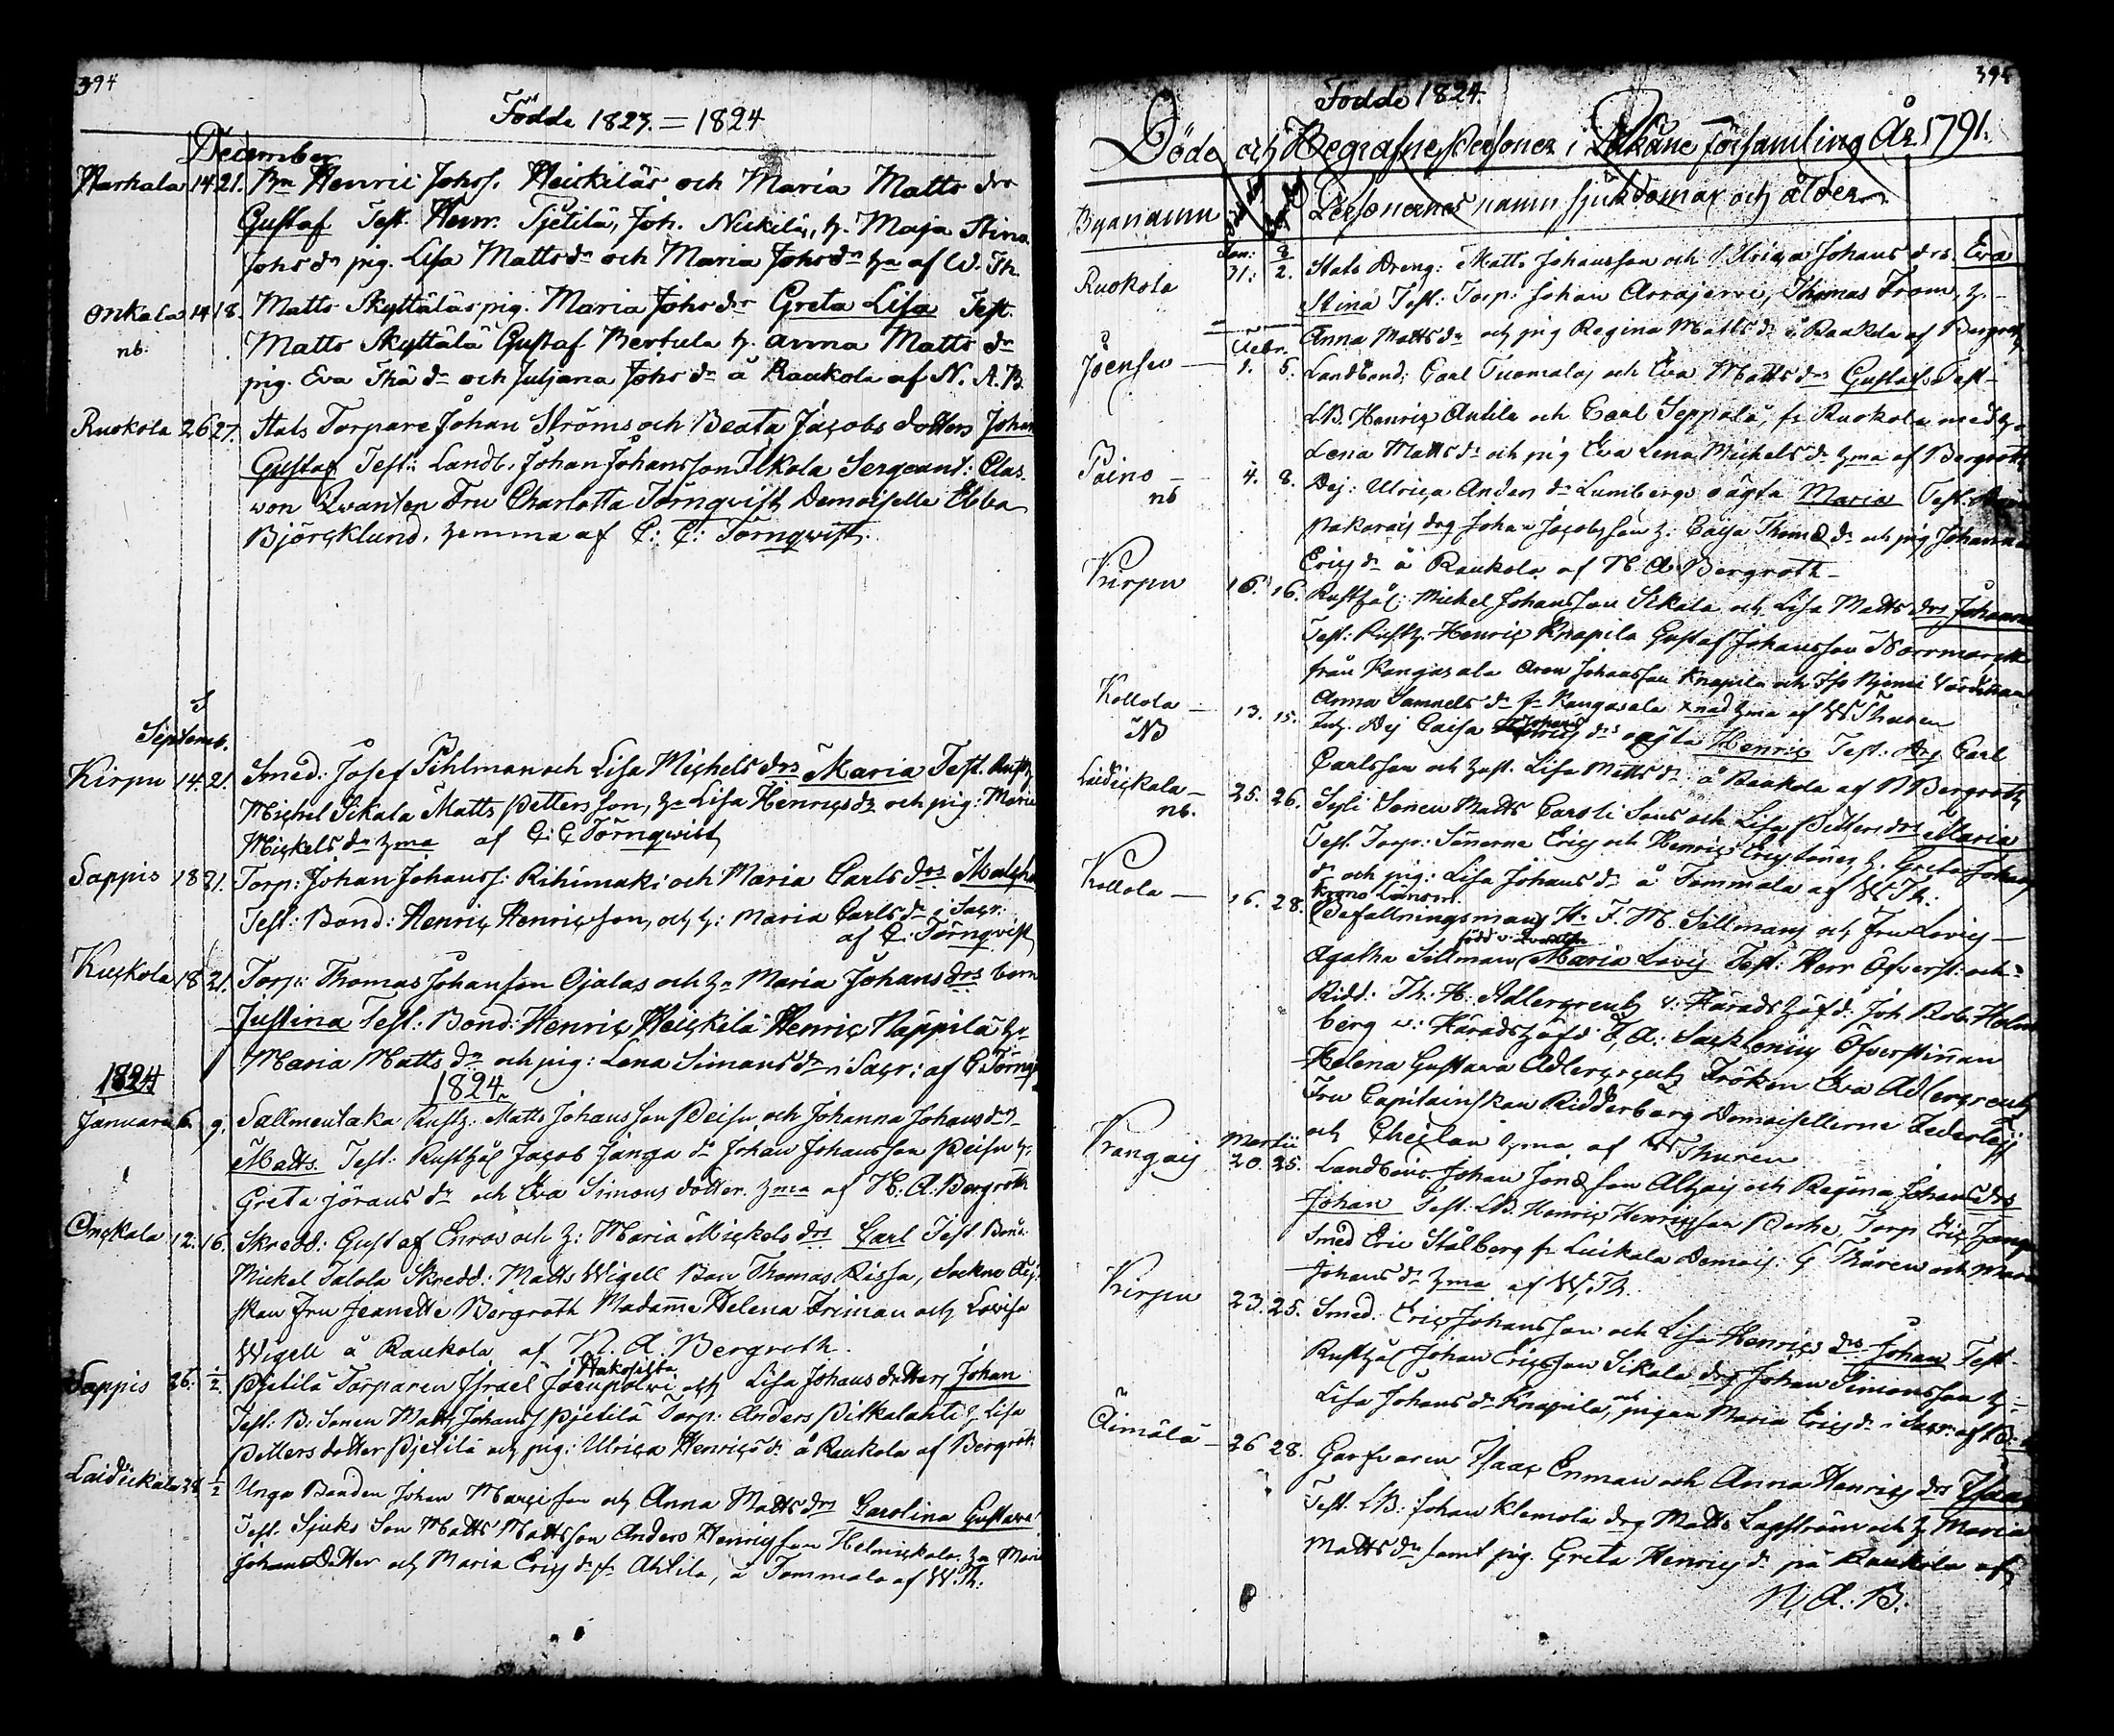 394
Födde 1823. = 1824
December
Warhala 14 21. Bn Henric Johss. Heickiläs och Maria Matts drs
Gustaf Test. Henr. Pjetilä, Joh. Nickilä, h. Maja Stina
Johs dr pig. Lisa Matts dr och Maria Johs dr hä af W. Th.
Onkala 14 18. Matts Skyttäläs pig. Maria Johs dr Greta Lisa Test.
nb. Matts Skyttälä Gustaf Bertula h. Anna Matts dr
pig. Eva Thõ dr och Juljana Johs dr å Raukola af N. A. B.
Ruokola 26 27. Stats Torpare Johan Ströms och Beata Jacobs dotters Johan
Gustaf Test: Landb. Johan Johansson Ilkola Sergeant: Clas
von Qvanten Fru Charlotta Törnqvist Demoiselle Ebba
Björcklund. hemma af C: C: Törnqvist.
Septemb.
Kirpu 14. 21. Smed: Josef Pihlman och Lisa Michels drs Maria Test. Rusth
Michel Sikala Matts Pettersson, hr Lisa Henrics dr och pig: Maria
Mickels dr hma af C: C Törnqwist
Sappis 18 21. Torp: Johan Johanss: Rihimaki och Maria Carls drs
Test: Bond: Henric Henricson, och h: Maria Carls dr i Sacr:
af C: Törnqvist
Kuckola 18 21. Torp: Thomas Johanson Ojalas och hr Maria Johans drs barn
Justina Test: Bond: Henric Heickilä Henric Nappilä hr
Maria Matts dr och pig: Lena Simons dr i Sacr: af C Törnq
1824
1824
Januari 6. 9. Sallmentaka Rusth. Matts Johansson Peisu och Johanna Johans drs
Matts. Test: Rusthål Jacob Jånga do Johan Johansson Peisu h:
Greta Jörans dr och Eva Simons dotter. hma af N: A: Bergroth
Onckala 12. 16. Skredd: Gustaf Enros och h: Maria Mickels drs Carl Test. Bond
Mickel Talola Skredd: Matts Wigell Bon Thomas Rissa, Sockne
skan Fru Jeanette Bergroth Madame Helena Friman och Lovisa
Wigell å Raukola af N. A. Bergroth.
Hakosilta
Sappis 26. 1/2 Pjetilä Torparen Israel och Lisa Johans dotters Johan
Test: B: Sonen Matts Johanss Pjetilä Torp: Anders Pitkalahti h. Lisa
Petters dotter Pjetilä och pig: Ulrica Henrics dr å Raukola af Bergroth
Laidickala 1/2 Unga Bonden Johan och Anna Matts drs Carolina Gustava
Test. Sjuks Son Matts Mattsson Anders Henricsson Helmickala. hr Maria
Johans dotter och Maria Erics dr fr Ahtila, å Tommola af W. Th:
Födde 1824.
Döde och Begrafne Personer i Pälkäne Församling År 1791.
Byanamn Personernes namn sjukdomar och ålder
Jan: 2
Ruokola 31. 2. Stats Dreng: Matts Johansson och Ulrica Johans drs. Eva
Stina Test: Torp: Johan Arrajervi, Thomas From, h.
Anna Matts dr och pig Regina Matts dr å Raukola af Bergroth
Febr.
Joensu 1. 5. Landbond: Carl Tuomalas och Eva Matts drs Gustaf Test
LB. Henric Antila och Carl Seppälä, fr Ruokola med h.
Lena Matts dr och pig Eva Lena Michels dr hma af Bergroth
Paino 4. 8. Dej: Ulrica Anders dr Lumbergs oägta Maria Test.
nb Pakarais drg Johan Jacobsson h: Caisa Thoms dr och pig Johanna
Erics dr å Raukola af N. A. Bergroth
Kirpu 16. 16. Rusthål: Mickel Johansson Sikala och Lisa Matts drs Johanna
Test: Rusth. Henric Knapila Gustaf Johansson Norrmarck
från Kangasala Aron Johansson Knapila och
Anna Samuels dr fr Kangasala hma af W Thuren
Kollola 13. 15. Inh. Dej Caisa Johans drs oägta Henric Test: Drg Carl
NB Carlsson och hust. Lisa Matts dr å Raukola af N Bergroth
Laidickala 25. 26. Syti Sonen Matts Caroli Sons och Lisa Petters drs Maria
nb. Test. Torp: Sönerne Eric och Henric Ericsöner, h. Greta Johans
dr och pig: Lisa Johans dr å Tommola af W Th:
Krono Länsm.
Kollola 16. 28. Befallningsman Hr F. M. Sillman och Fru Lovis
född v. Qvanten
Agatha Sillman Maria Lovis Test: Herr Öfverst: och
Ridd: Th: H: Adlercreutz v: Häradshöfd. Joh Rob: Holm
berg v: Häradshöfd: A: Öfverstinnan
Helena Gustava Adlercreutz Fröken Eva Adlercreutz
Fru Capitainskan Ridderborg Demoisellerne Federley
och hma af W Thuren
Martii
Vrangais 20. 25. Landbon: Johan Alhais och Regina Johans drs
Johan Test: LB. Henric Henricsson Torp Eric
Smed Eric Stålberg fr Luikala Demois: G Thuren och Maria
Johans dr hma af W. Th.
Kirpu 23. 25. Smed: Eric Johansson och Lisa Henrics drs Johan Test
Rusthål Johan Ericsson Sikala drg Johan Simonsson h
Lisa Johans dr Knapila, och pigan Maria Erics dr i Sacr: af
Äimälä 26 28. Garfvaren Isaac Enman och Anna Henrics drs Isaac
Test. LB: Johan Klemola drg Matts Lapström och h Maria
Matts dr samt pig. Greta Henrics dr på Raukola af
N. A. B.